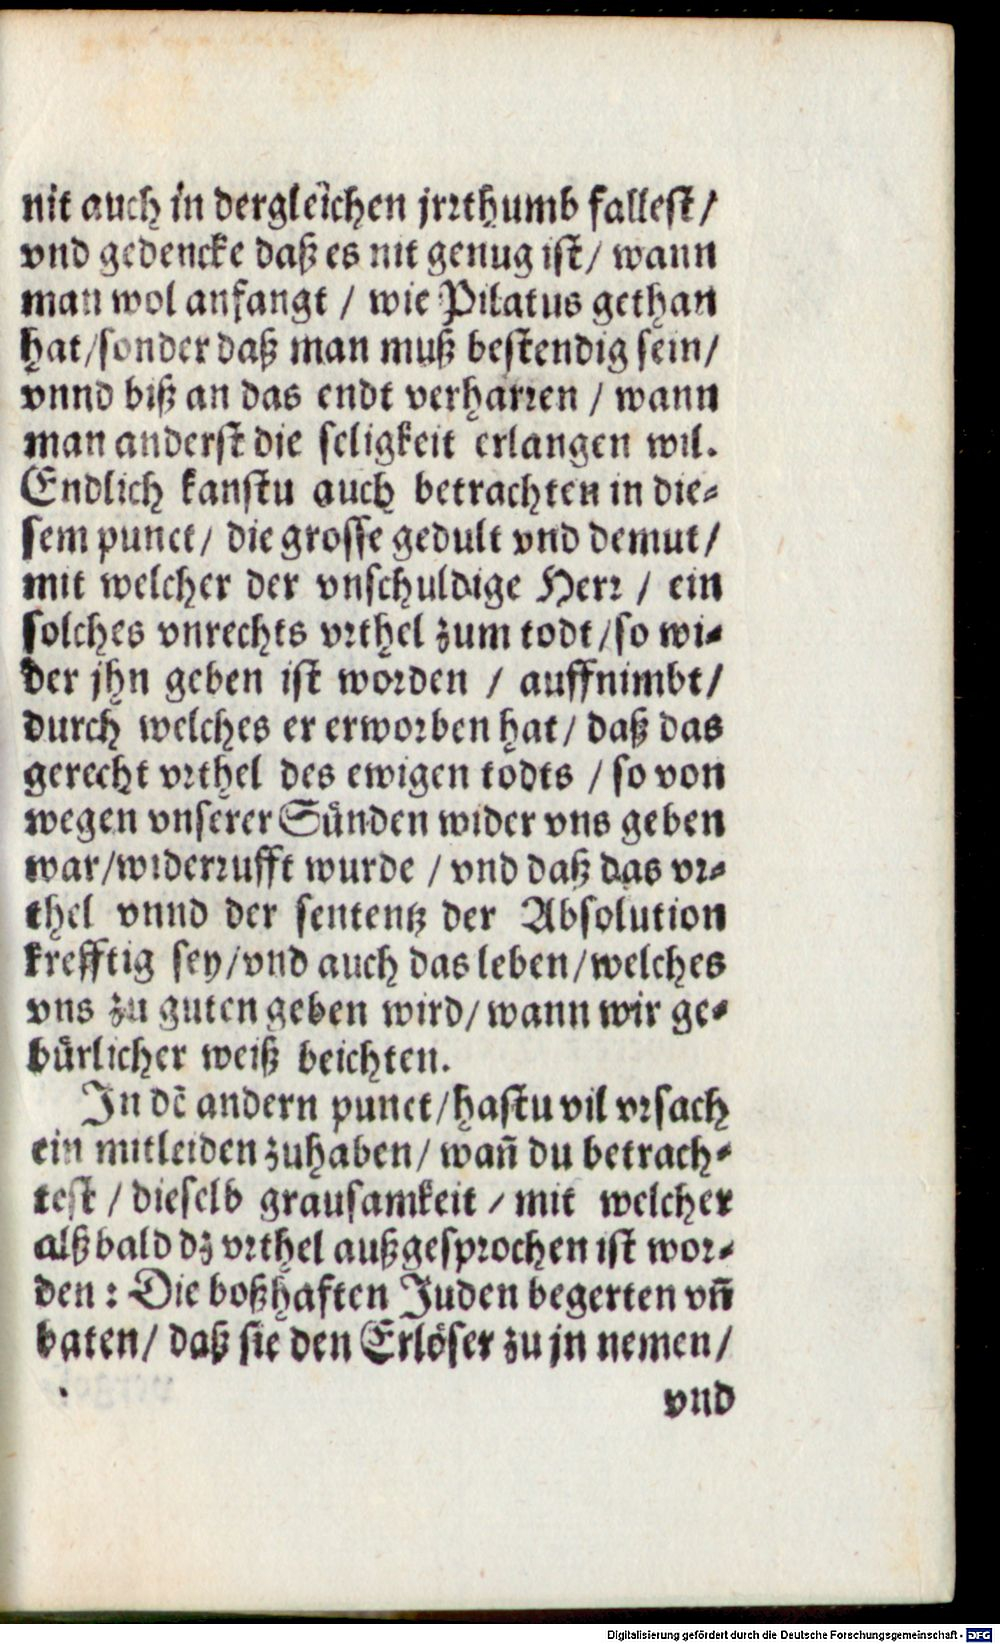 nit auch in dergleichen jrrthumb fallest/
vnd gedencke daß es nit genug ist/ wann
man wol anfangt / wie Pilatus gethan
hat/sonder daß man muß bestendig sein/
vnnd biß an das endt verharren / wann
man anderst die seligkeit erlangen wil.
Endlich kanstu auch betrachten in die-
sem punct/ die grosse gedult vnd demut/
mit welcher der vnschuldige Herr / ein
solches vnrechts vrthel zum todt/so wi-
der jhn geben ist worden / auffnimbt/
durch welches er erworben hat/ daß das
gerecht vrthel des ewigen todts / so von
wegen vnserer Sünden wider vns geben
war/widerrufft wurde / vnd daß das vr-
thel vnnd der sententz der Absolution
krefftig sey/vnd auch das leben/welches
vns zu guten geben wird/ wann wir ge-
bürlicher weiß beichten.
In dē andern punct/hastu vil vrsach
ein mitleiden zuhaben/ wañ du betrach-
test / dieselb grausamkeit / mit welcher
alßbald dz vrthel außgesprochen ist wor-
den: Die boßhaften Juden begerten vñ
baten/ daß sie den Erlöser zu jn nemen/
vnd
Digitalisierung gefördert durch die Deutsche Forschungsgemeinschaft - DFG